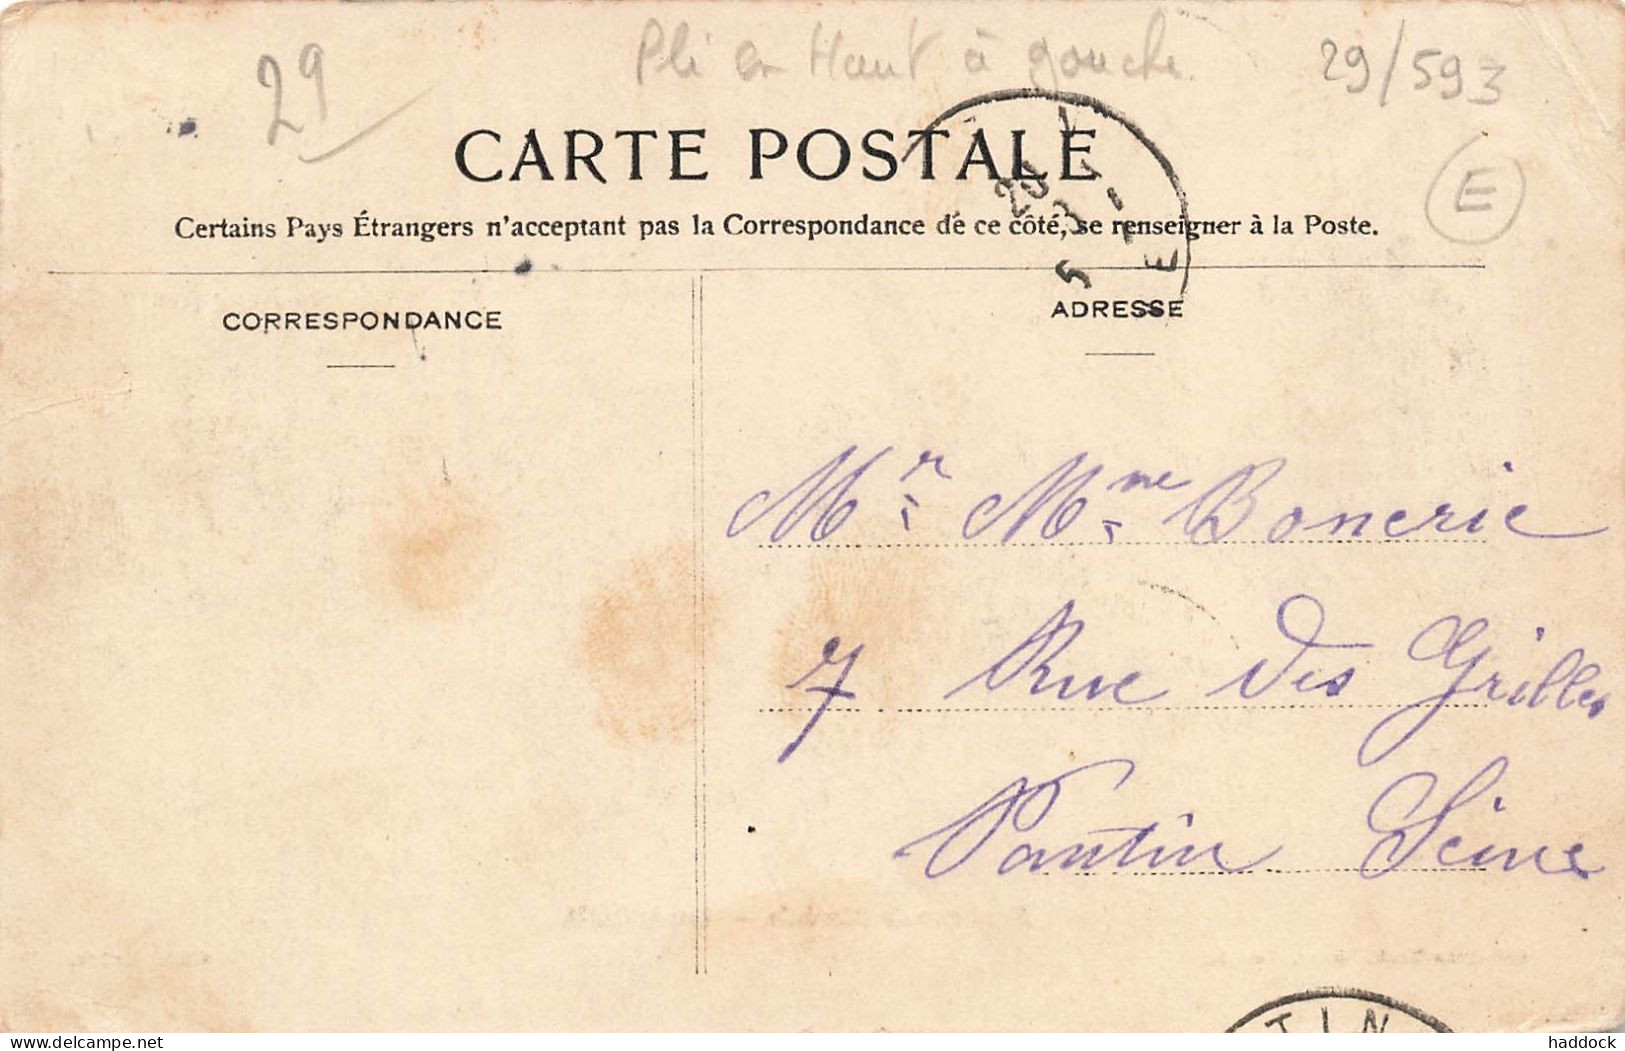 29
Pli en Haut à gauche.
29/593
CARTE POSTALE
E
Certains Pays Étrangers n'acceptant pas la Correspondance de ce côté, se renseigner à la Poste.
CORRESPONDANCE
ADRESSE
Mr Mme Bonerie
7 Rue des Grilles
Pantin Seine
TIN
delcampe.net
haddock